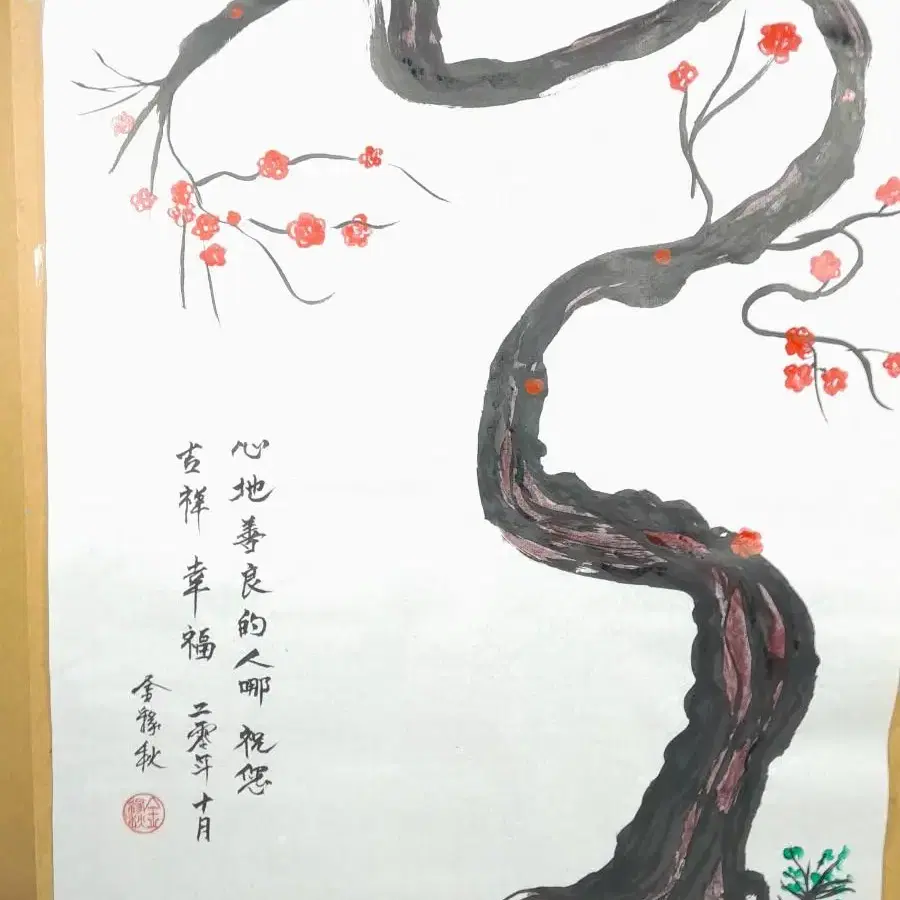 心地善良的人哪 祝您
吉祥 幸福 二零年十月
金緣秋
金緣秋